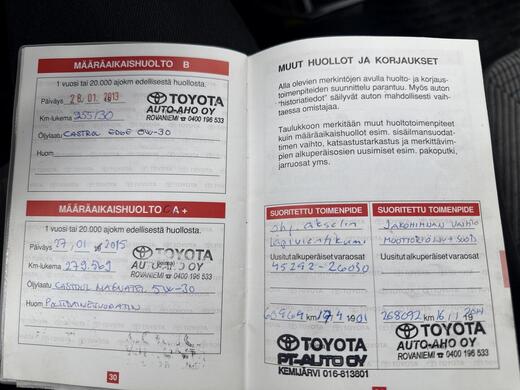 MÄÄRÄAIKAISHUOLTO B
1 vuosi tai 20.000 ajokm edellisestä huollosta.
Päiväys 28.01.2013
Km-lukema 255130
TOYOTA
AUTO-AHO OY
ROVANIEMI ☎ 0400 196 533
Öljylaatu CASTROL EDGE 0W-30
Huom
MÄÄRÄAIKAISHUOLTO A +
1 vuosi tai 20.000 ajokm edellisestä huollosta.
Päiväys 27.01 2015
Km-lukema 279.561
TOYOTA
AUTO-AHO OY
ROVANIEMI ☎ 0400 196 533
Öljylaatu CASTROL MAGNATEC 5W-30
Huom
30
MUUT HUOLLOT JA KORJAUKSET
Alla olevien merkintöjen avulla huolto- ja korjaus-
toimenpiteiden suunnittelu parantuu. Myös auton
"historiatiedot" säilyvät auton mahdollisesti vaih-
taessa omistajaa.
Taulukkoon merkitään muut huoltotoimenpiteet
kuin määräaikaishuollot esim. sisäilmansuodat-
timen vaihto, katsastustarkastus ja merkittävim-
pien alkuperäisosien uusimiset esim. pakoputki,
jarruosat yms.
SUORITETTU TOIMENPIDE
ohj. akselin
Uusitut alkuperäiset varaosat
45292-26050
km 17.4 19 01
TOYOTA
PT-AUTO OY
KEMIJÄRVI 016-813801
SUORITETTU TOIMENPIDE
JAKOHIHNAN VAIHTO
Uusitut alkuperäiset varaosat
268092 km 16.11 19
TOYOTA
AUTO-AHO OY
ROVANIEMI ☎ 0400 196 533